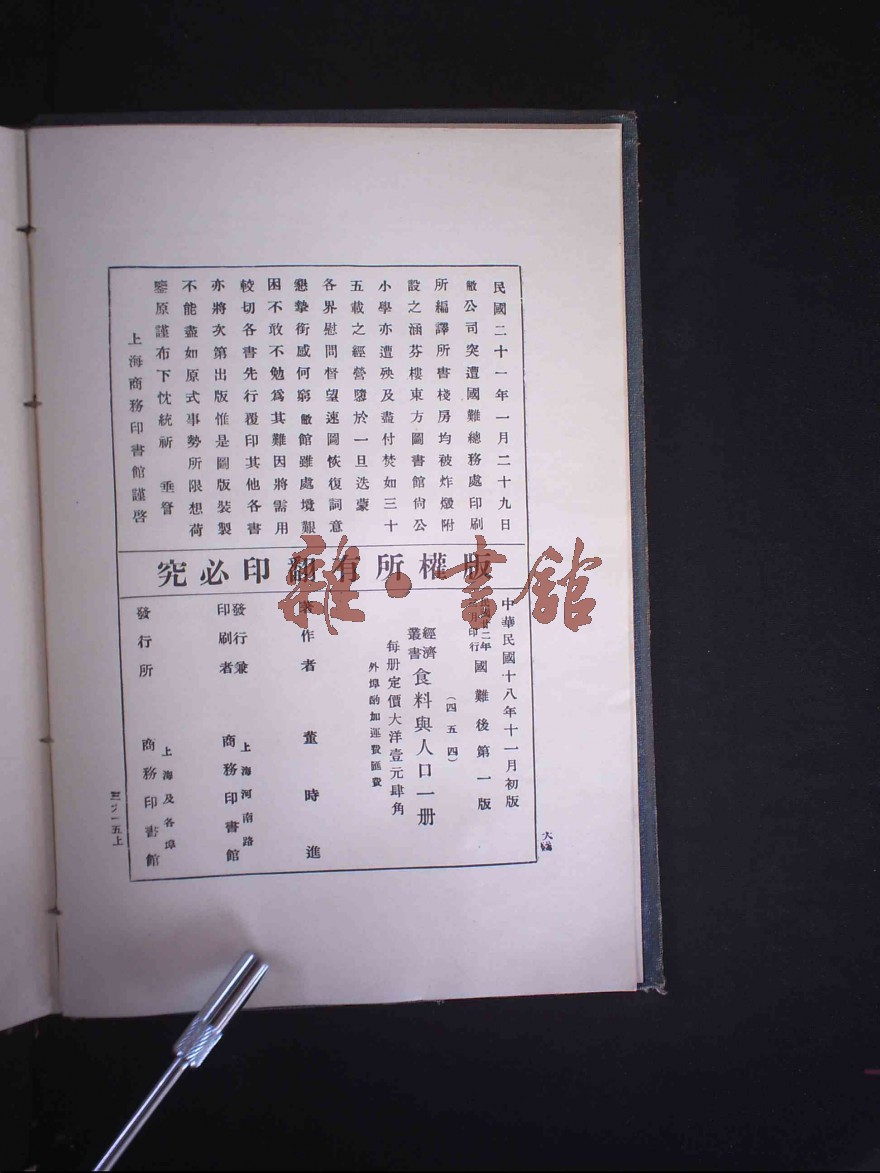 民國二十一年一月二十九日
敝公司突遭國難總務處印刷
所編譯所書棧房均被炸燬附
設之涵芬樓東方圖書館尙公
小學亦遭殃及盡付焚如三十
五載之經營隳於一旦迭蒙
各界慰問督望速圖恢復詞意
懇摯銜感何窮敝館雖處境艱
困不敢不勉爲其難因將需用
較切各書先行覆印其他各書
亦將次第出版惟是圖版裝製
不能盡如原式事勢所限想荷
鑒原謹布下忱統祈 垂詧
上海商務印書館謹啓
版權所有翻印必究
中華民國十八年十一月初版
民國廿二年
月印行
國難後第一版
(四五四)
經濟
叢書
食料與人口一册
每册定價大洋壹元肆角
外埠酌加運費匯費
著作者 董時進
發行兼
印刷者
上海河南路
商務印書館
發行所
上海及各埠
商務印書館
雜·書館